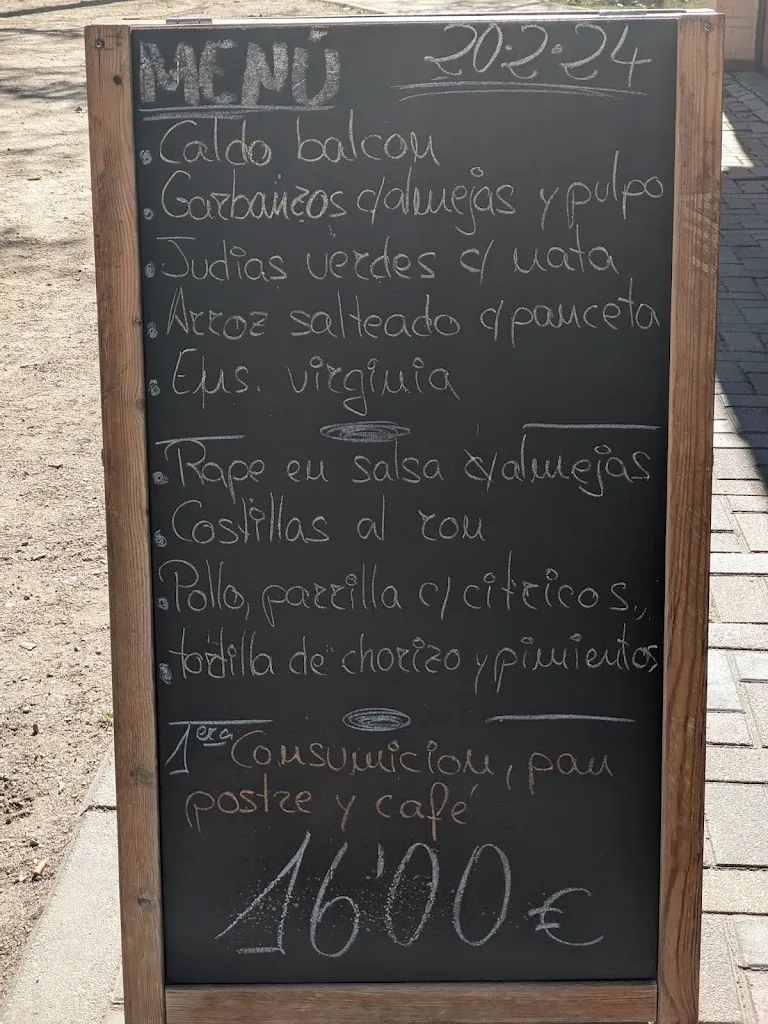 MENÚ 20-2-24
Caldo balcon
Garbanzos c/almejas y pulpo
Judias verdes c/ nata
Arroz salteado c/panceta
Ens. virginia
Rape en salsa c/almejas
Costillas al ron
Pollo, parrilla c/citricos.,
tortilla de chorizo y pimientos,
1era Consumicion, pan
postre y café
16'00€